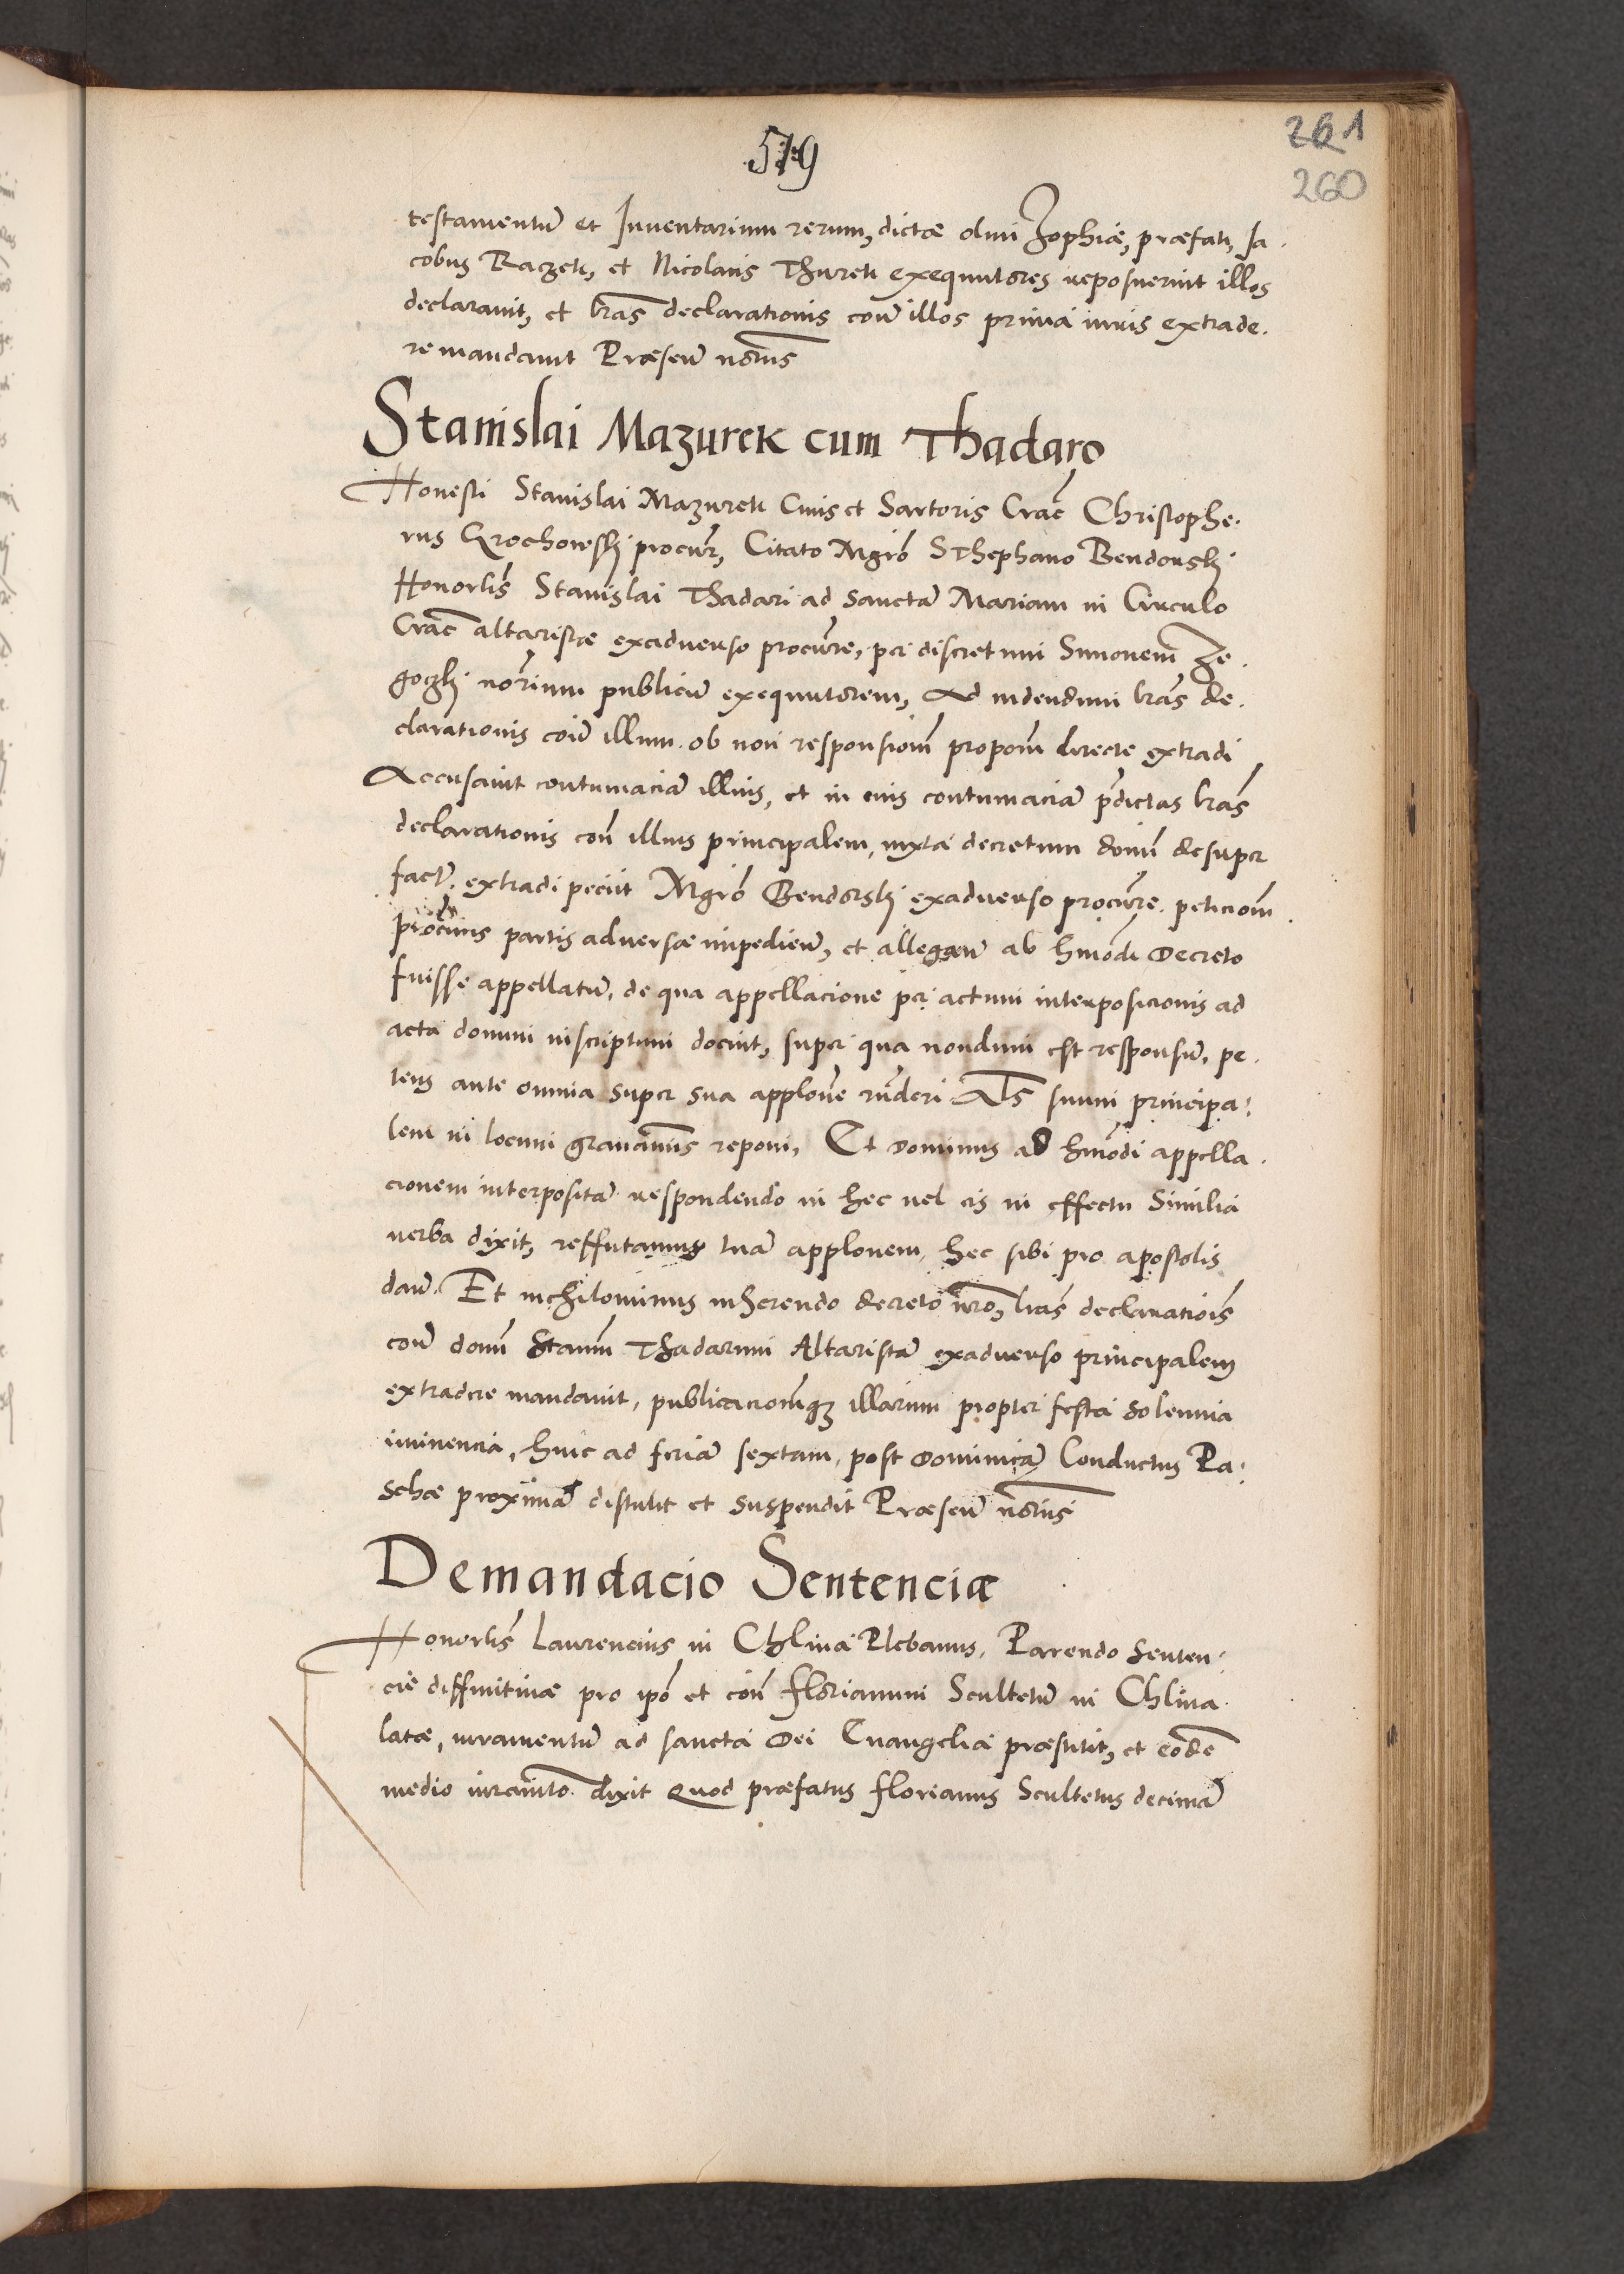 579
261
260
testamentũ et Inuentarium rerum, dictæ olim Zophiæ, præfati, Ja.
cobus Raczek, et Nicolaus Thurek exequutores reposuerint illos
declarauit, et lrãs declarationis coñ illos prima iuris extrade.
re mandauit Præseñ notus
Stanislai Mazurek cum Thadaro
Honesti Stanislai Mazurek Ciuis et Sartoris Crac̃ Christophe.
rus Grochowskj procur, Citato Mgrõ Sthephano Bendonskj
Honorlis Stanislai Thadari ad Sanctã Mariam in Circulo
Crac̃ altaristæ exaduerso procure, per discretum Simonem Ze.
goczkj norium publicũ exequutorem, Ad videndum lrãs de.
clarationis coñ illum ob non responsiom̃ propom̃ directe extradi
Accusauit contumaciã illius, et in eius contumaciã p̃dictas lrãs
declarationis coñ illius principalem, iuxta decretum domi desuper
factũ extradi peciit Mgrõ Bendorskj exaduerso procure peticiom̃
procuris partis aduersæ impedieñ, et allegañ ab hmõdi Decreto
fuisse appellatũ, de qua appellacione per actum interposicionis ad
acta domini inscriptum docuit, super qua nondum est responsũ, pe.
tens ante omnia super sua applone r̃nderi Als suum principa:
lem in locum grauaminis reponi, Et Dominus ad hmõdi appella.
cionem interpositã respondendo in hec uel eis in effectu Similia
uerba dixit, reffutamus tuã applonem, hec sibi pro apostolis
dañ. Et nichilominus inherendo decreto nrõ, lrãs declaratiois
coñ domi Stanm̃ Thadarum Altaristã exaduerso principalem
extradere mandauit, publicaciom̃qz illarum propter festa Solennia
iminencia, hinc ad feriã sextam, post Dominicã Conductus Pa:
schæ proximã distulit et suspendit Præseñ notus
Demandacio Sentenciæ
Honorlis Laurencius in Chlina Plebanus, Parendo Senten:
ciẽ diffinitiuæ pro ipõ et coñ Florianum Scultetũ in Chlina
latæ, iuramentũ ad sancta Dei Euangelia præstitit, et eodẽ
medio iuramto dixit Quod præfatus Florianus Scultetus decimã